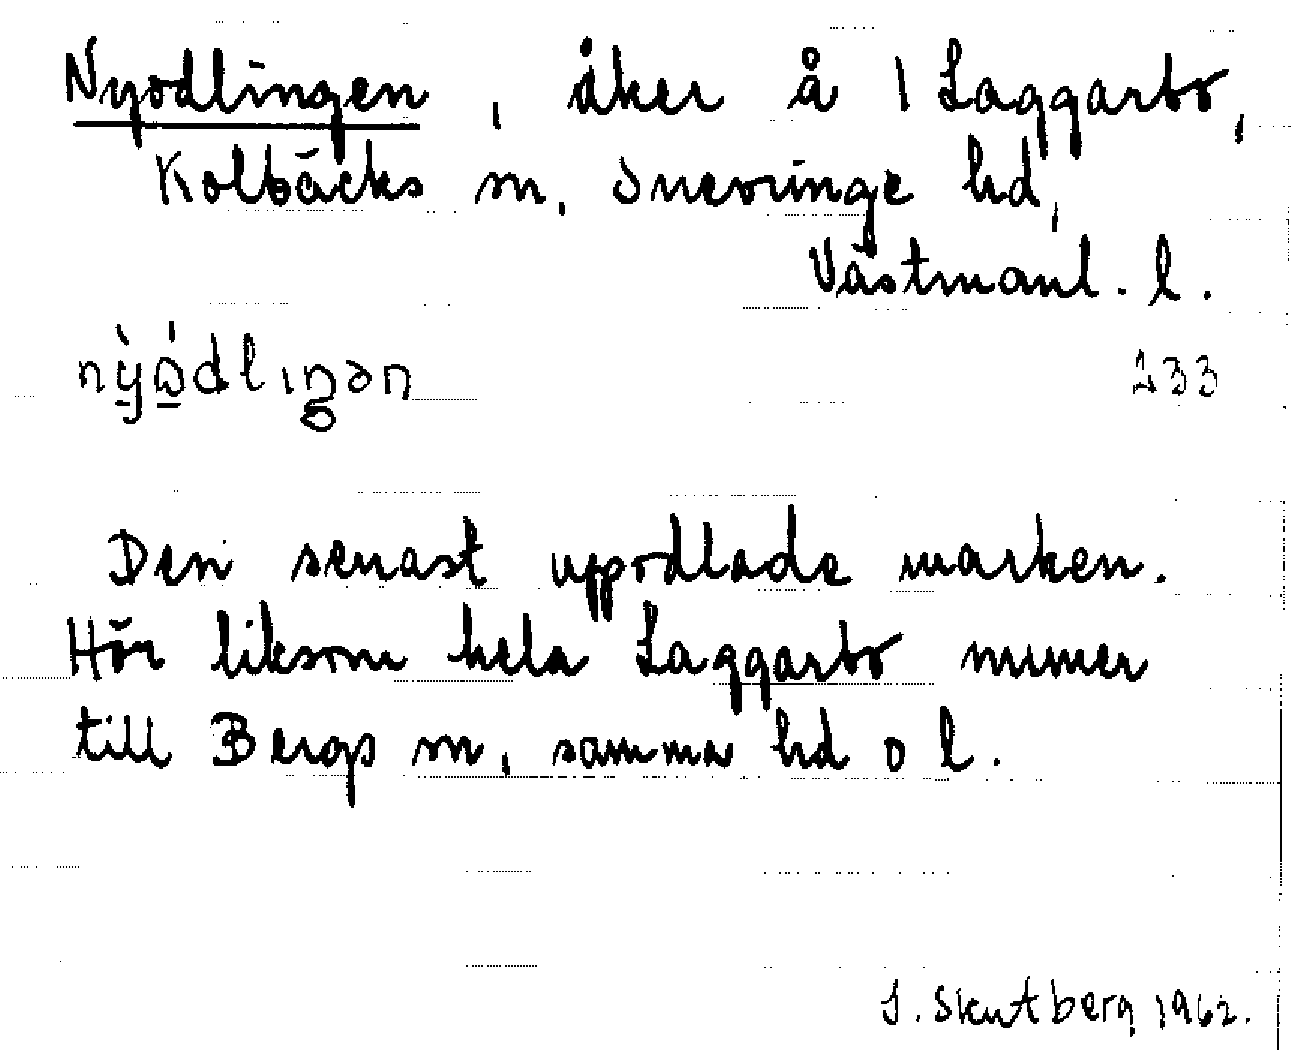 Nyodlingen, åker å 1 Laggarbo,
Kolbäcks sn, Snevringe hd,
Västmanl. l.
nỳó̲dlıŋən 233
Den senast uppodlade marken.
Hör liksom hela Laggarbo numer
till Bergs sn, samma hd o l.
J. Skutberg 1962.